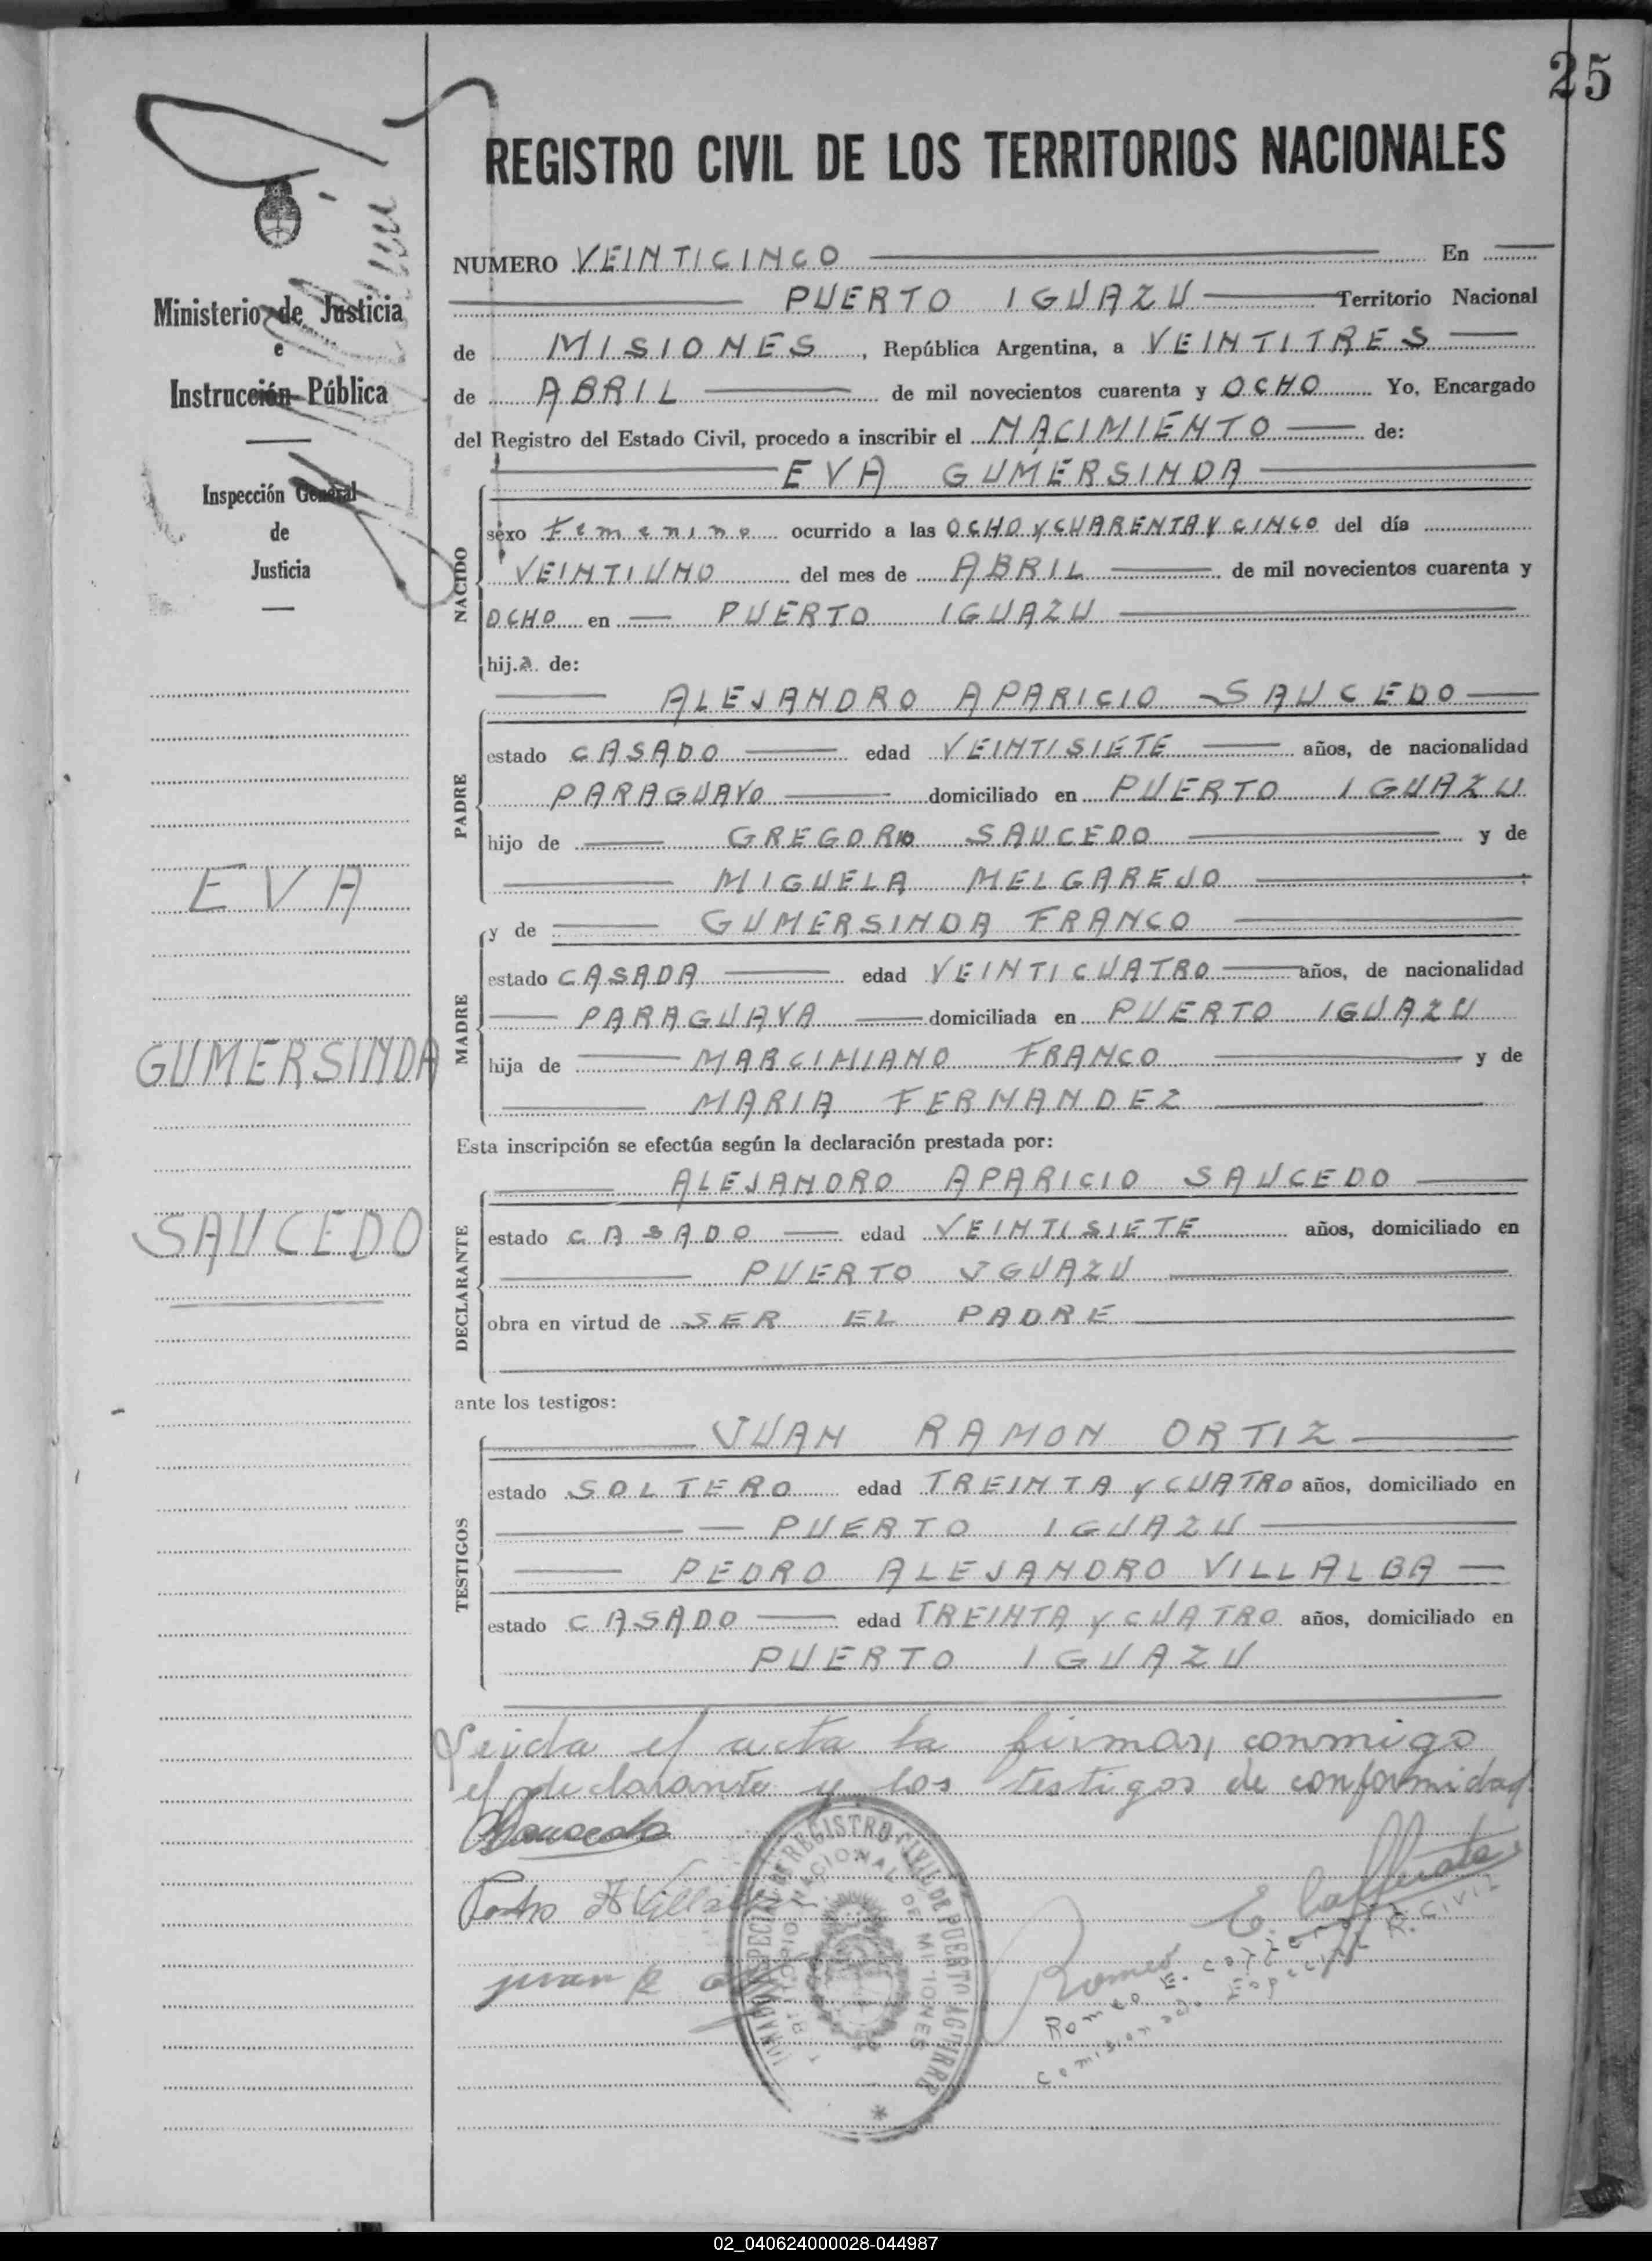 25
REGISTRO CIVIL DE LOS TERRITORIOS NACIONALES
Ministerio de Justicia
e
Instrucción Pública
Inspección General
de
Justicia
EVA
GUMERSINDA
SAUCEDO
NUMERO VEINTICINCO En
PUERTO IGUAZU Territorio Nacional
de MISIONES, República Argentina, a VEINTITRES
de ABRIL de mil novecientos cuarenta y OCHO Yo, Encargado
del Registro del Estado Civil, procedo a inscribir el NACIMIENTO de:
EVA GUMERSINDA
NACIDO
sexo Femenino ocurrido a las OCHO Y CUARENTA Y CINCO del día
VEINTIUNO del mes de ABRIL de mil novecientos cuarenta y
OCHO en PUERTO IGUAZU
hija de:
ALEJANDRO APARICIO SAUCEDO
PADRE
estado CASADO edad VEINTISIETE años, de nacionalidad
PARAGUAYO domiciliado en PUERTO IGUAZU
hijo de GREGORIO SAUCEDO y de
MIGUELA MELGAREJO
y de GUMERSINDA FRANCO
MADRE
estado CASADA edad VEINTICUATRO años, de nacionalidad
PARAGUAYA domiciliada en PUERTO IGUAZU
hija de MARCINIANO FRANCO y de
MARIA FERNANDEZ
Esta inscripción se efectúa según la declaración prestada por:
ALEJANDRO APARICIO SAUCEDO
DECLARANTE
estado CASADO edad VEINTISIETE años, domiciliado en
PUERTO IGUAZU
obra en virtud de SER EL PADRE
ante los testigos:
JUAN RAMON ORTIZ
TESTIGOS
estado SOLTERO edad TREINTA Y CUATRO años, domiciliado en
PUERTO IGUAZU
PEDRO ALEJANDRO VILLALBA
estado CASADO edad TREINTA Y CUATRO años, domiciliado en
PUERTO IGUAZU
Leida el acta la firman conmigo
el declarante y los testigos de conformidad
Pedro A Villalba
juan R
Romeo E.
Romeo E.
Comisionado Especial R. CIVIL
REGISTRO CIVIL DE PUERTO AGUIRRE
NACIONAL DE MISIONES
02_040624000028-044987